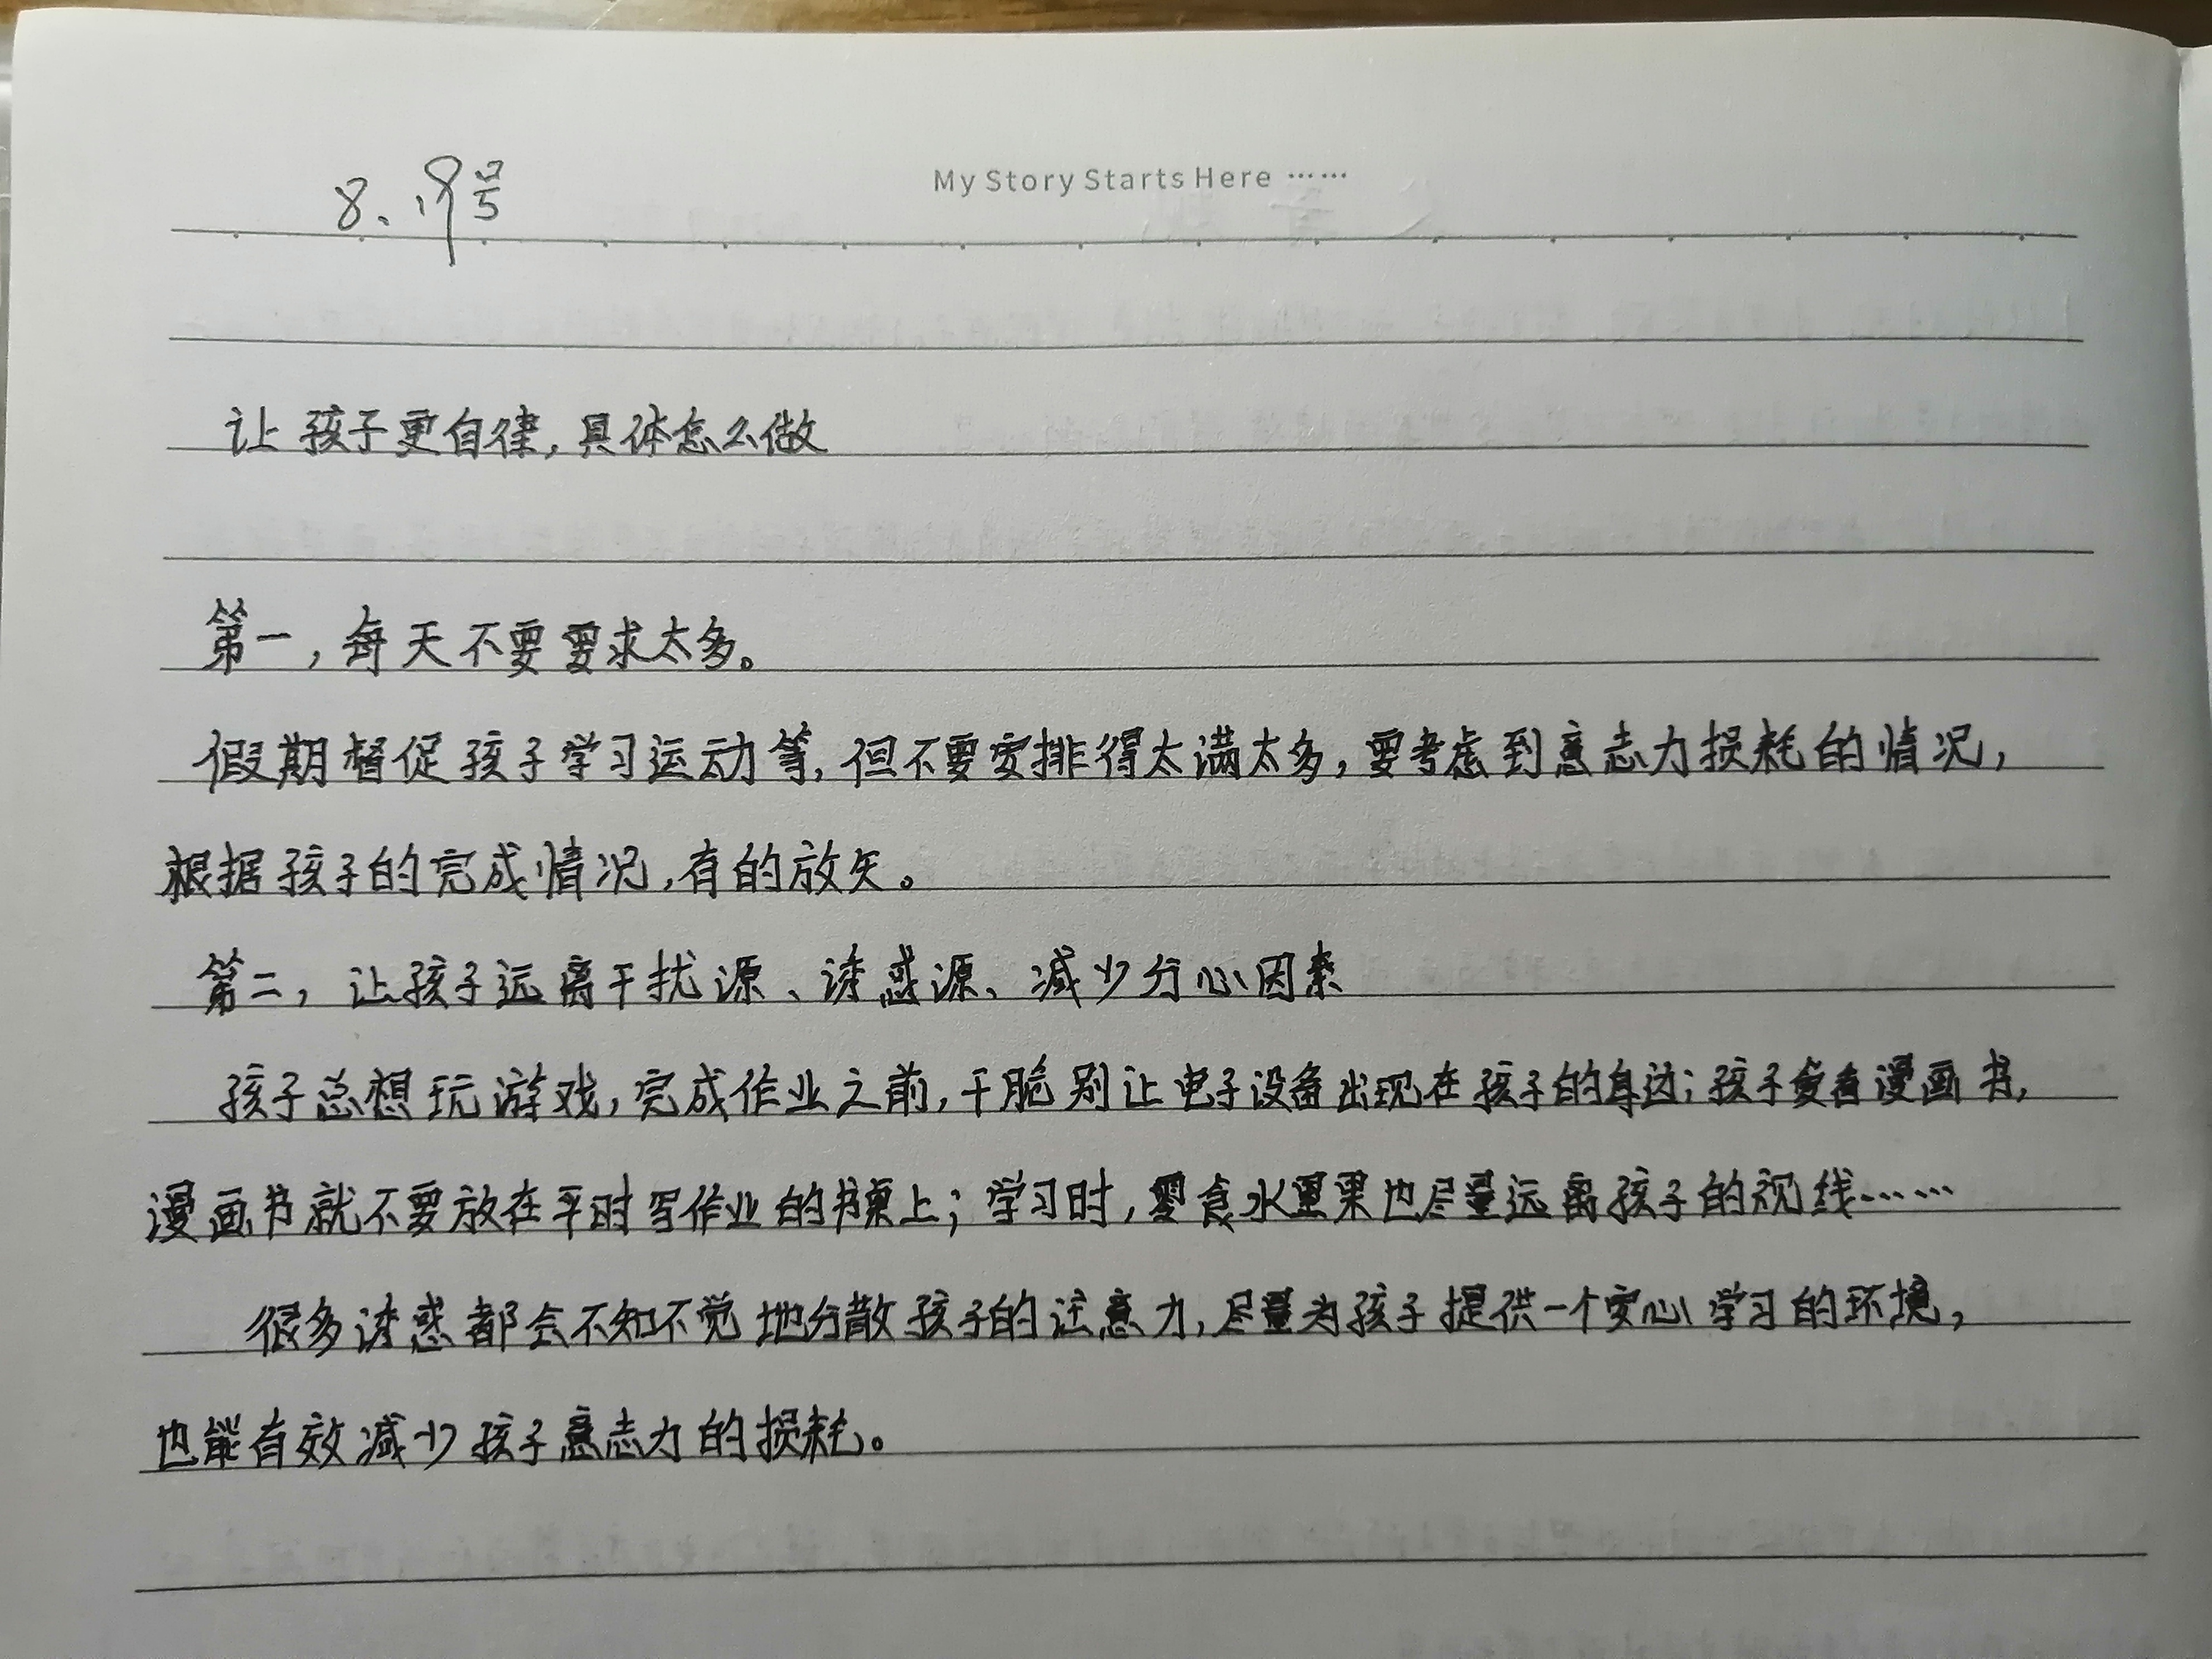 My Story Starts Here ……
8、19号
让孩子更自律,具体怎么做
第一,每天不要要求太多。
假期督促孩子学习运动等,但不要安排得太满太多,要考虑到意志力损耗的情况,
根据孩子的完成情况,有的放矢。
第二,让孩子远离干扰源、诱惑源、减少分心因素
孩子总想玩游戏,完成作业之前,干脆别让电子设备出现在孩子的身边;孩子爱看漫画书,
漫画书就不要放在平时写作业的书桌上;学习时,零食水果也尽量远离孩子的视线……
很多诱惑都会不知不觉地分散孩子的注意力,尽量为孩子提供一个安心学习的环境,
也能有效减少孩子意志力的损耗。